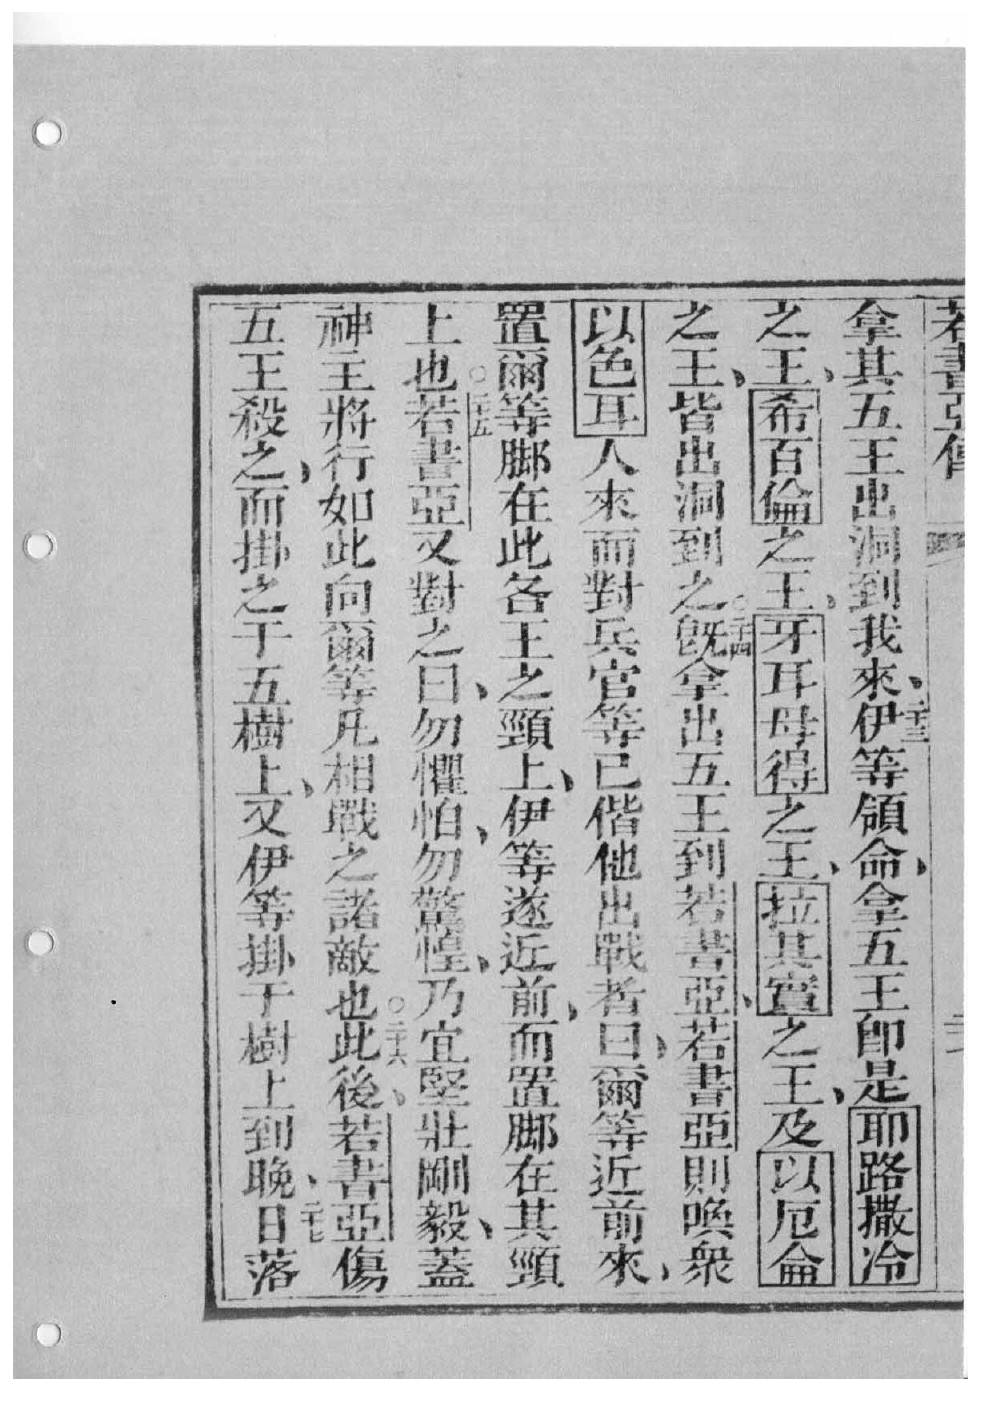 若書亞傳
拿其五王出洞到我來、二十三伊等領命、拿五王卽是耶路撒冷
之王、希百倫之王、牙耳母得之王、拉其實之王、及以厄倫
之王、皆出洞到之。二十四旣拿出五王到若書亞、若書亞則喚衆
以色耳人來而對兵官等已偕他出戰者曰、爾等近前來、
置爾等脚在此各王之頸上、伊等遂近前、而置脚在其頸
上也。二十五若書亞又對之曰、勿懼怕、勿驚惶、乃宜堅壯剛毅、蓋
神主將行如此向爾等凡相戰之諸敵也。二十六此後、若書亞傷
五王殺之、而掛之于五樹上、又伊等掛于樹上到晚、二十七日落